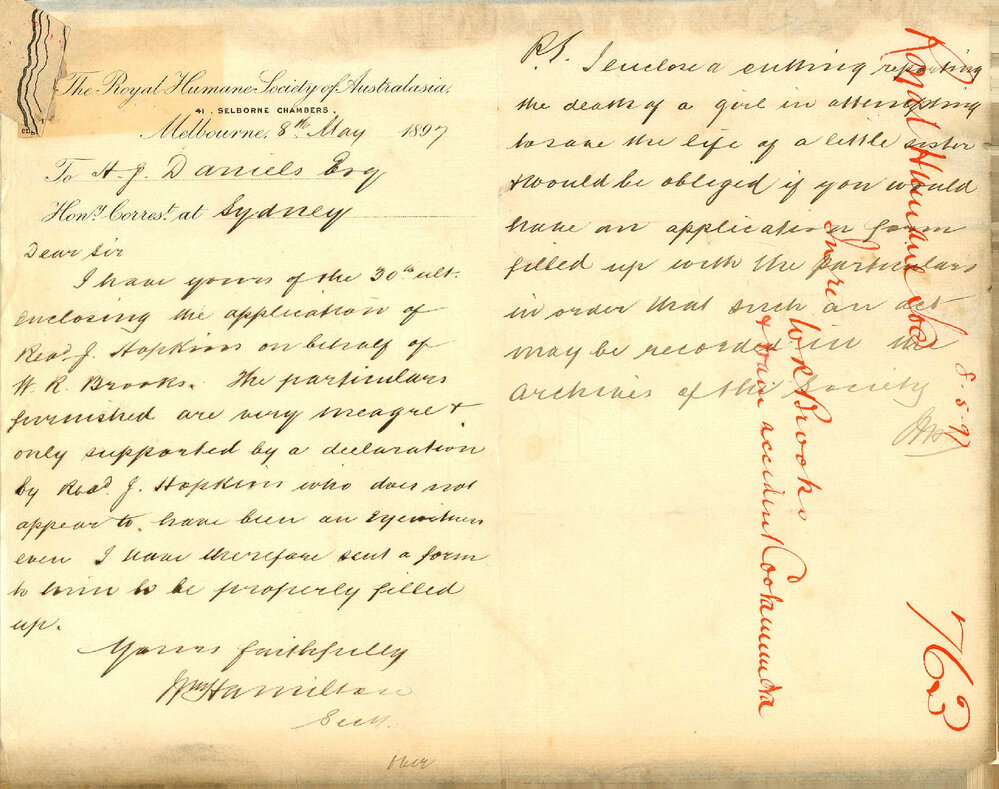 The Royal Humane Society of Australasia.
41, SELBORNE CHAMBERS,
Melbourne, 8th May 1897
To H. J. Daniels Esq
Hony. Correst. at Sydney
Dear Sir
I have yours of the 30th ult.
enclosing the application of
Revd. J. Hopkins on behalf of
W. R. Brooks. The particulars
furnished are very meagre +
only supported by a declaration
by Revd. J. Hopkins who does not
appear to have been an Eyewitness
even I have therefore sent a form
to him to be properly filled
up.
Yours faithfully
Wm Hamilton
Secy.
Over
P.S. I enclose a cutting reporting
the death of a girl in attempting
to save the life of a little sister
+ would be obliged if you would
have an application form
filled up with the particulars
in order that such an act
may be recorded in the
Archives of the Society
Royal Humane Soc
8-5-97
In re W R Brooks
+ train accident Cootamundra
763